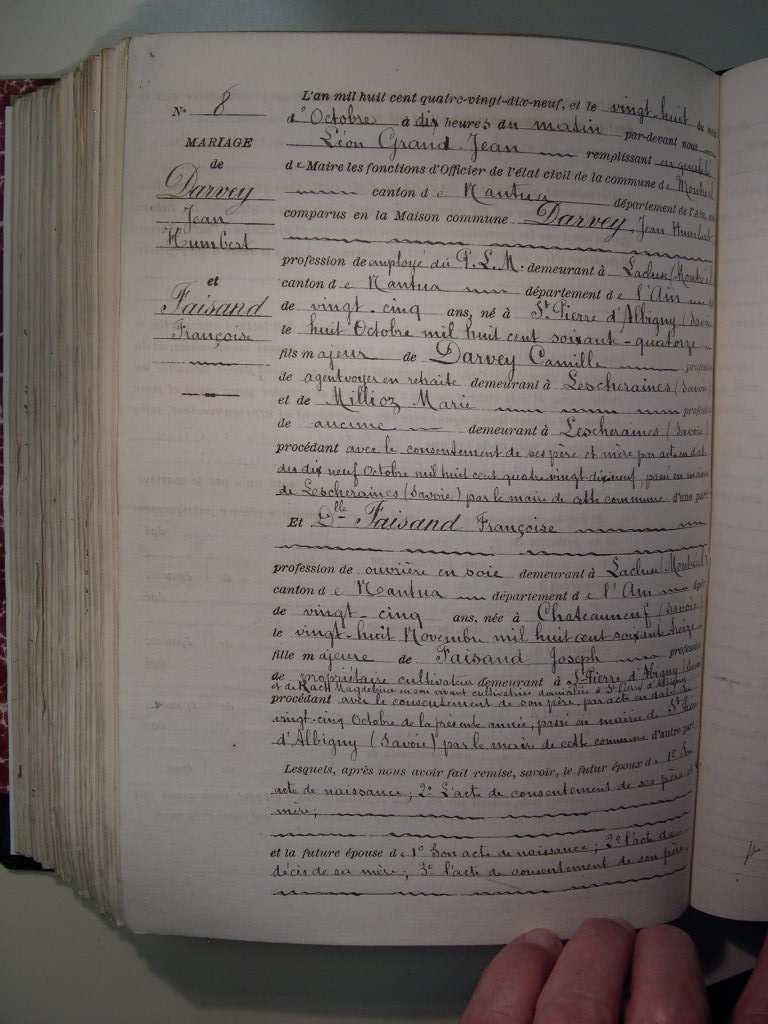 N° 8
MARIAGE
de
Darvey
Jean
Humbert
et
Faisand
Françoise
L'an mil huit cent quatre-vingt-dix-neuf, et le vingt-huit du mois
d'Octobre à dix heures du matin par-devant nous
Léon Grand-Jean remplissant en qualité
de Maire les fonctions d'Officier de l'état civil de la commune de
canton de Nantua département de l'Ain,
comparus en la Maison commune Darvey Jean Humbert
profession de employé du P.L.M. demeurant à Lacluse (Montréal)
canton de Nantua département de l'Ain
de vingt-cinq ans, né à St Pierre d'Albigny (Savoie)
le huit Octobre mil huit cent soixante-quatorze
fils majeur de Darvey Camille
de agent voyer en retraite demeurant à Lescheraines (Savoie)
et de Millioz Marie
de aucune demeurant à Lescheraines (Savoie)
procédant avec le consentement de ses père et mère par acte en date
du dix neuf Octobre mil huit cent quatre vingt dix neuf, passé en mairie
de Lescheraines (Savoie) par le maire de cette commune d'une part.
Et Dlle Faisand Françoise
profession de ouvrière en soie demeurant à Lacluse (Montréal)
canton de Nantua département de l'Ain
de vingt-cinq ans, née à Chateauneuf (Savoie)
le vingt-huit Novembre mil huit cent soixante-treize
fille majeure de Faisand Joseph
de propriétaire cultivateur demeurant à St-Pierre d'Albigny (Savoie)
et de Magdeleine en son vivant cultivatrice domiciliée à St Pierre d'Albigny
procédant avec le consentement de son père, par acte en date du
vingt-cinq Octobre de la présente année, passé en mairie de St Pierre
d'Albigny (Savoie) par le maire de cette commune d'autre part.
Lesquels, après nous avoir fait remise, savoir, le futur époux de 1° Son
acte de naissance; 2° L'acte de consentement de ses père et
mère;
et la future épouse de 1° Son acte de naissance; 2° l'acte de
décès de sa mère; 3° l'acte de consentement de son père